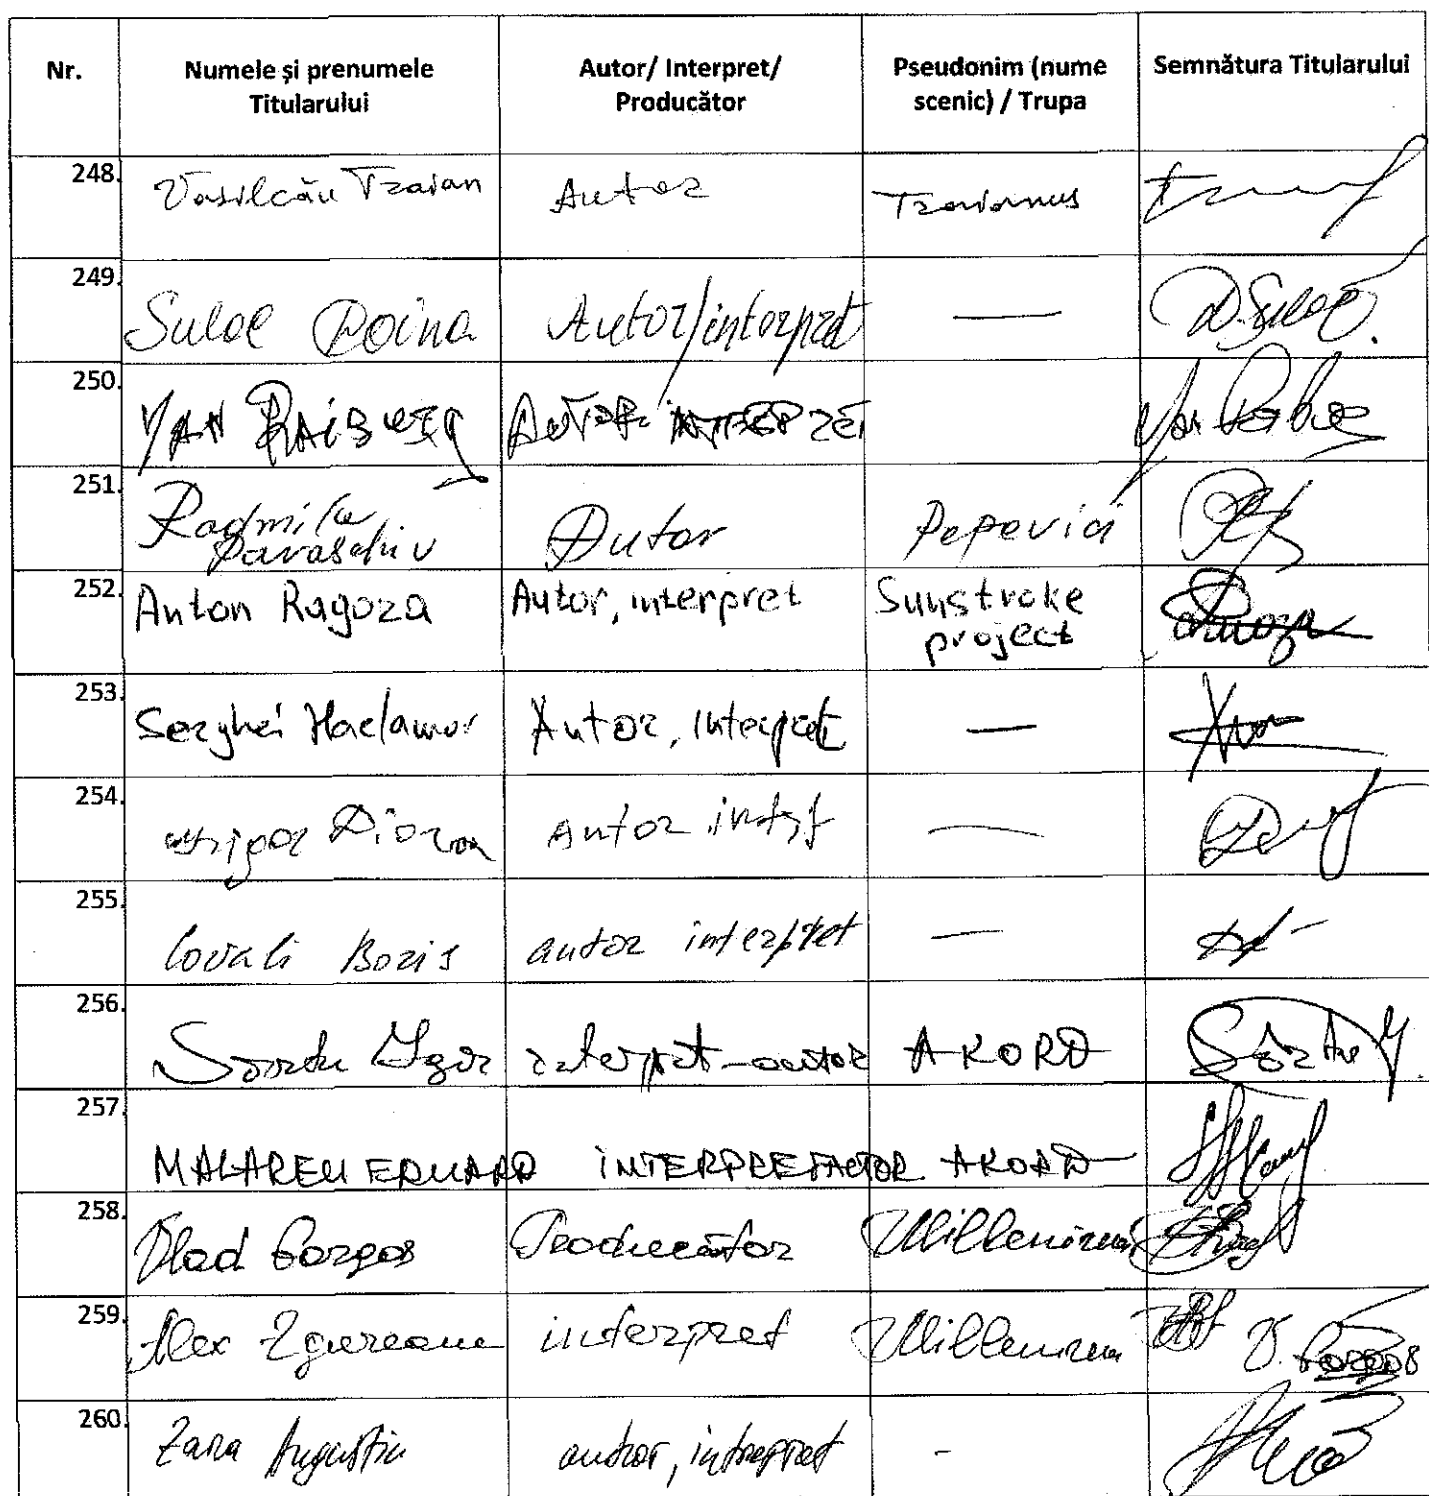 Nr. Numele și prenumele Titularului Autor/ Interpret/ Producător Pseudonim (nume scenic) / Trupa Semnătura Titularului
248. Vasilcău Traian Autor Traianus
249. Suloe Doina Autor/interpret — D. Suloe
250. YAN RAiBURG AUTOR
251. Radmila Paraschiv Autor Popovici
252. Anton Ragoza Autor, interpret Sunstroke project
253. Serghei Haclamov Autor, interpret —
254. Autor —
255. Covali Boris autor interpret —
256. Igor interpret-autor AKORD
257. MALAREU EDUARD INTERPRET AKORD
258. Vlad Gorgos Producător Millenium
259. Alex Zgureanu interpret Millenium V. Gorgos
260. Zara Augustin autor, intrepret -